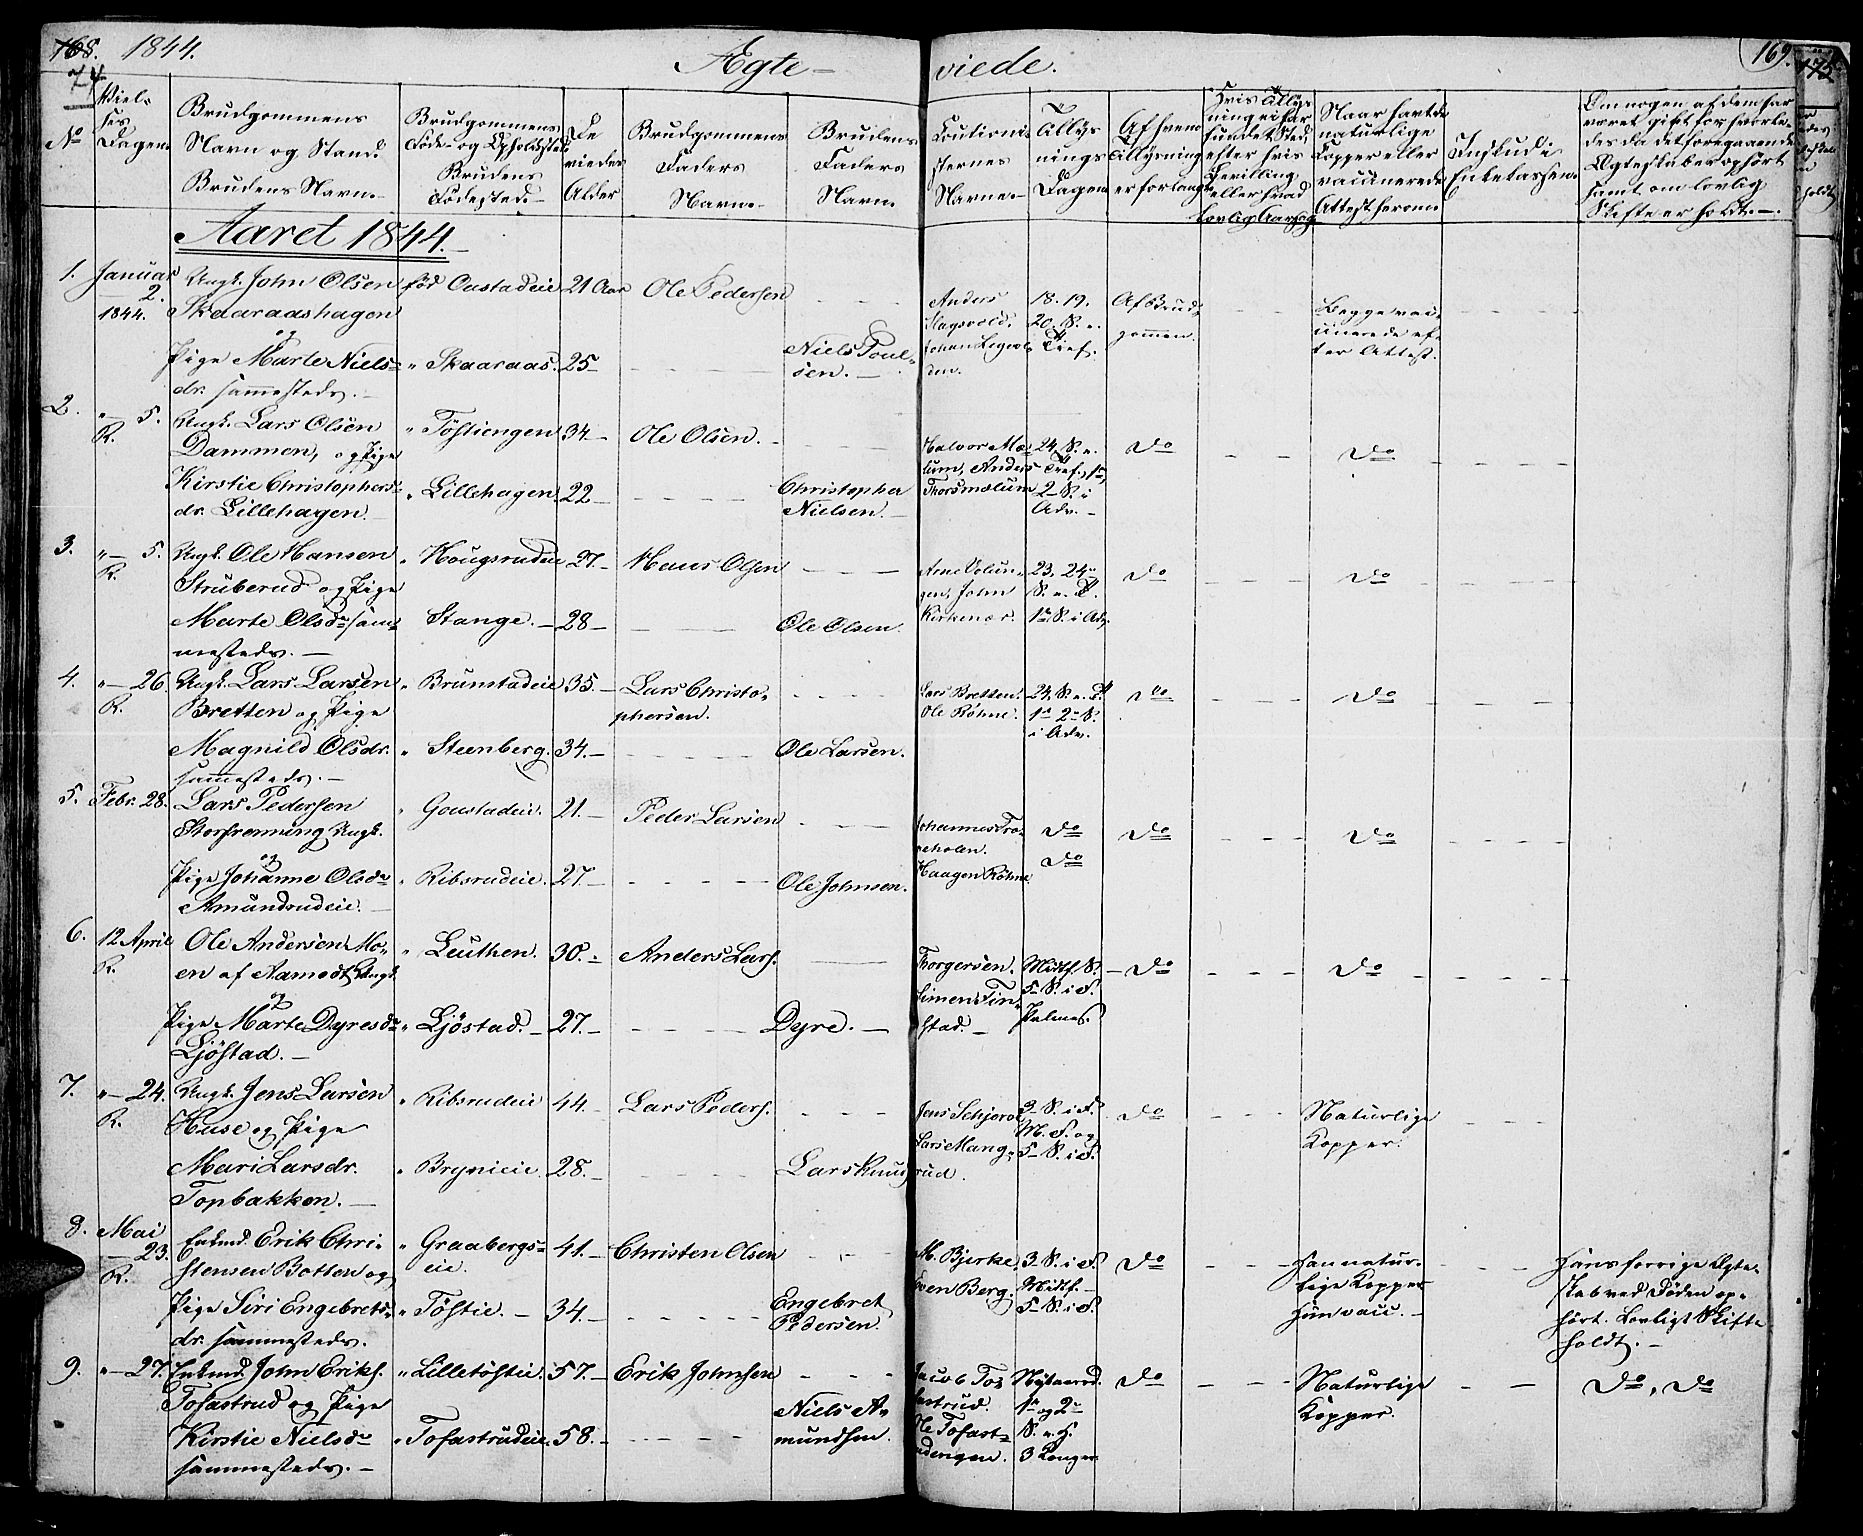 168. 1844.
74
Ægte-
viede.
169.
175
No
Viel-
ses
Dagen
Brudgommens
Navn og Stand.
Brudens Navn.
Brudgommens
Føde- og Opholdsted
Brudens
Fødested.
De
viedes
Alder
Brudgommens
Faders
Navn.
Brudens
Faders
Navn.
Cautioni-
sternes
Navne.
Tillys
nings
Dagen
Af hvem
Tillysning
er forlangt
Hvis Tillys-
ning ei har
fundet Sted,
efter hvis
Bevilling
eller hvad
lovlig Aarsag
Naar havde
naturlige
Kopper eller
vaccinerede
Attest herom.
Indskud i
Enkekassen.
Om nogen af dem har
været gift før hvorle-
des da det foregaaende
Ægteskab er ophørt
samt om lovlig
Skifte er holdt.
Aaret 1844.
1. Januar
2.
1844.
Ungk. John Olsen
Skaaraashagen
og
Pige Marte Niels-
dr. sammesteds.
fød Oustadeie
" Skaaraas.
21 Aar
25
Ole Pedersen
Niels Poul-
sen.
Anders
Slagsvold.
Johan Ligvol-
den.
18. 19.
20. S. e.
Tref.
Af Brud-
gommen.
Begge vac-
cinerede ef-
ter Attest.
2. " 5.
R.
Ungk. Lars Olsen
Dammen, og Pige
Kirstie Christophers-
dr. Lillehagen.
" Töstiengen
" Lillehagen
34.
22
Ole Olsen.
Christopher
Nielsen.
Halvor Mæ-
lum, Anders
Thorsmælum
24. S. e.
Tref. 1ste
2 S. i
Adv.
Do
Do
3. " 5.
R.
Ungk. Ole Hansen
Struberud og Pige
Marte Olsdr sam-
mesteds.
" Hougsrudeie
Stange.
27.
28
Hans Olsen
Ole Olsen.
Arne Volun-
gen, John
Kirkenær.
23. 24de
S. e. T.
1ste S. i Adv.
Do
Do
4. " 26.
R.
Ungk. Lars Larsen
Bretten og Pige
Magnild Olsdr.
sammesteds.
" Brunstadeie
" Steenberg.
35.
34.
Lars Christo-
phersen.
Ole Larsen.
Lars Bretten.
Ole Röhne.
24. S. e. T.
1ste 2den S.
i Adv.
Do
Do
5. Febr. 28.
Lars Pedersen
Storhrenning Ungk.
og
Pige Johanne Olsdr
Amundrudeie.
" Goustadeie.
" Ribsrudeie.
21.
27.
Peder Larsen
Ole Johnsen.
Johannes Tro-
eholen.
Haagen Röhne
Do
Do
Do
Do
6. 12 April
R.
Ole Andersen Mo-
en af Aamodt, Ungk.
og
Pige Marte Dyresdr
Ljöstad.
" Leuthen.
" Ljöstad.
30.
27.
Anders Lars.
Dyre.
Thorgersen.
Simen Fin-
stad.
Midf. S.
5 S. i F.
Palmes.
Do
Do
7. " 24.
R.
Ungk. Jens Larsen
Huse og Pige
Mari Larsdr.
Topbakken.
" Ribsrudeie
" Brynieie.
44.
28.
Lars Peders.
Lars Knud
Jens Schjerve
Lars Mang-
rud.
3 S. i F.
M. F. og
5 S. i F.
Do
Naturlige
Kopper.
8. Mai
23.
R.
Enkmd. Erik Chri-
stensen Botten og
Pige Siri Engebrets-
dr. sammesteds.
" Graabergs-
eie.
" Töstie.
41.
34.
Christen Olsen
Engebret
Pedersen.
M. Bjerke.
Even Berg.
3. S. i F.
Midf.
5 S. i F.
Do
Han natur-
lige Kopper
Hun vacc.
Hans forrige Ægte-
skab ved Döden op-
hört. Lovligt Skifte
holdt.
9. " 27.
Enkmd. John Eriks.
Tofastrud og Pige
Kirstie Nielsdr
sammesteds.
" Lilletöstie.
" Tofastrudeie.
57.
58.
Erik Johnsen
Niels A-
mundsen.
Jacob Tof
astrud.
Ole Tofast-
rudengen.
Nytaarsd.
1ste og 2den
S. e. H.
3 Konger
Do
Naturlige
Kopper.
Do, Do